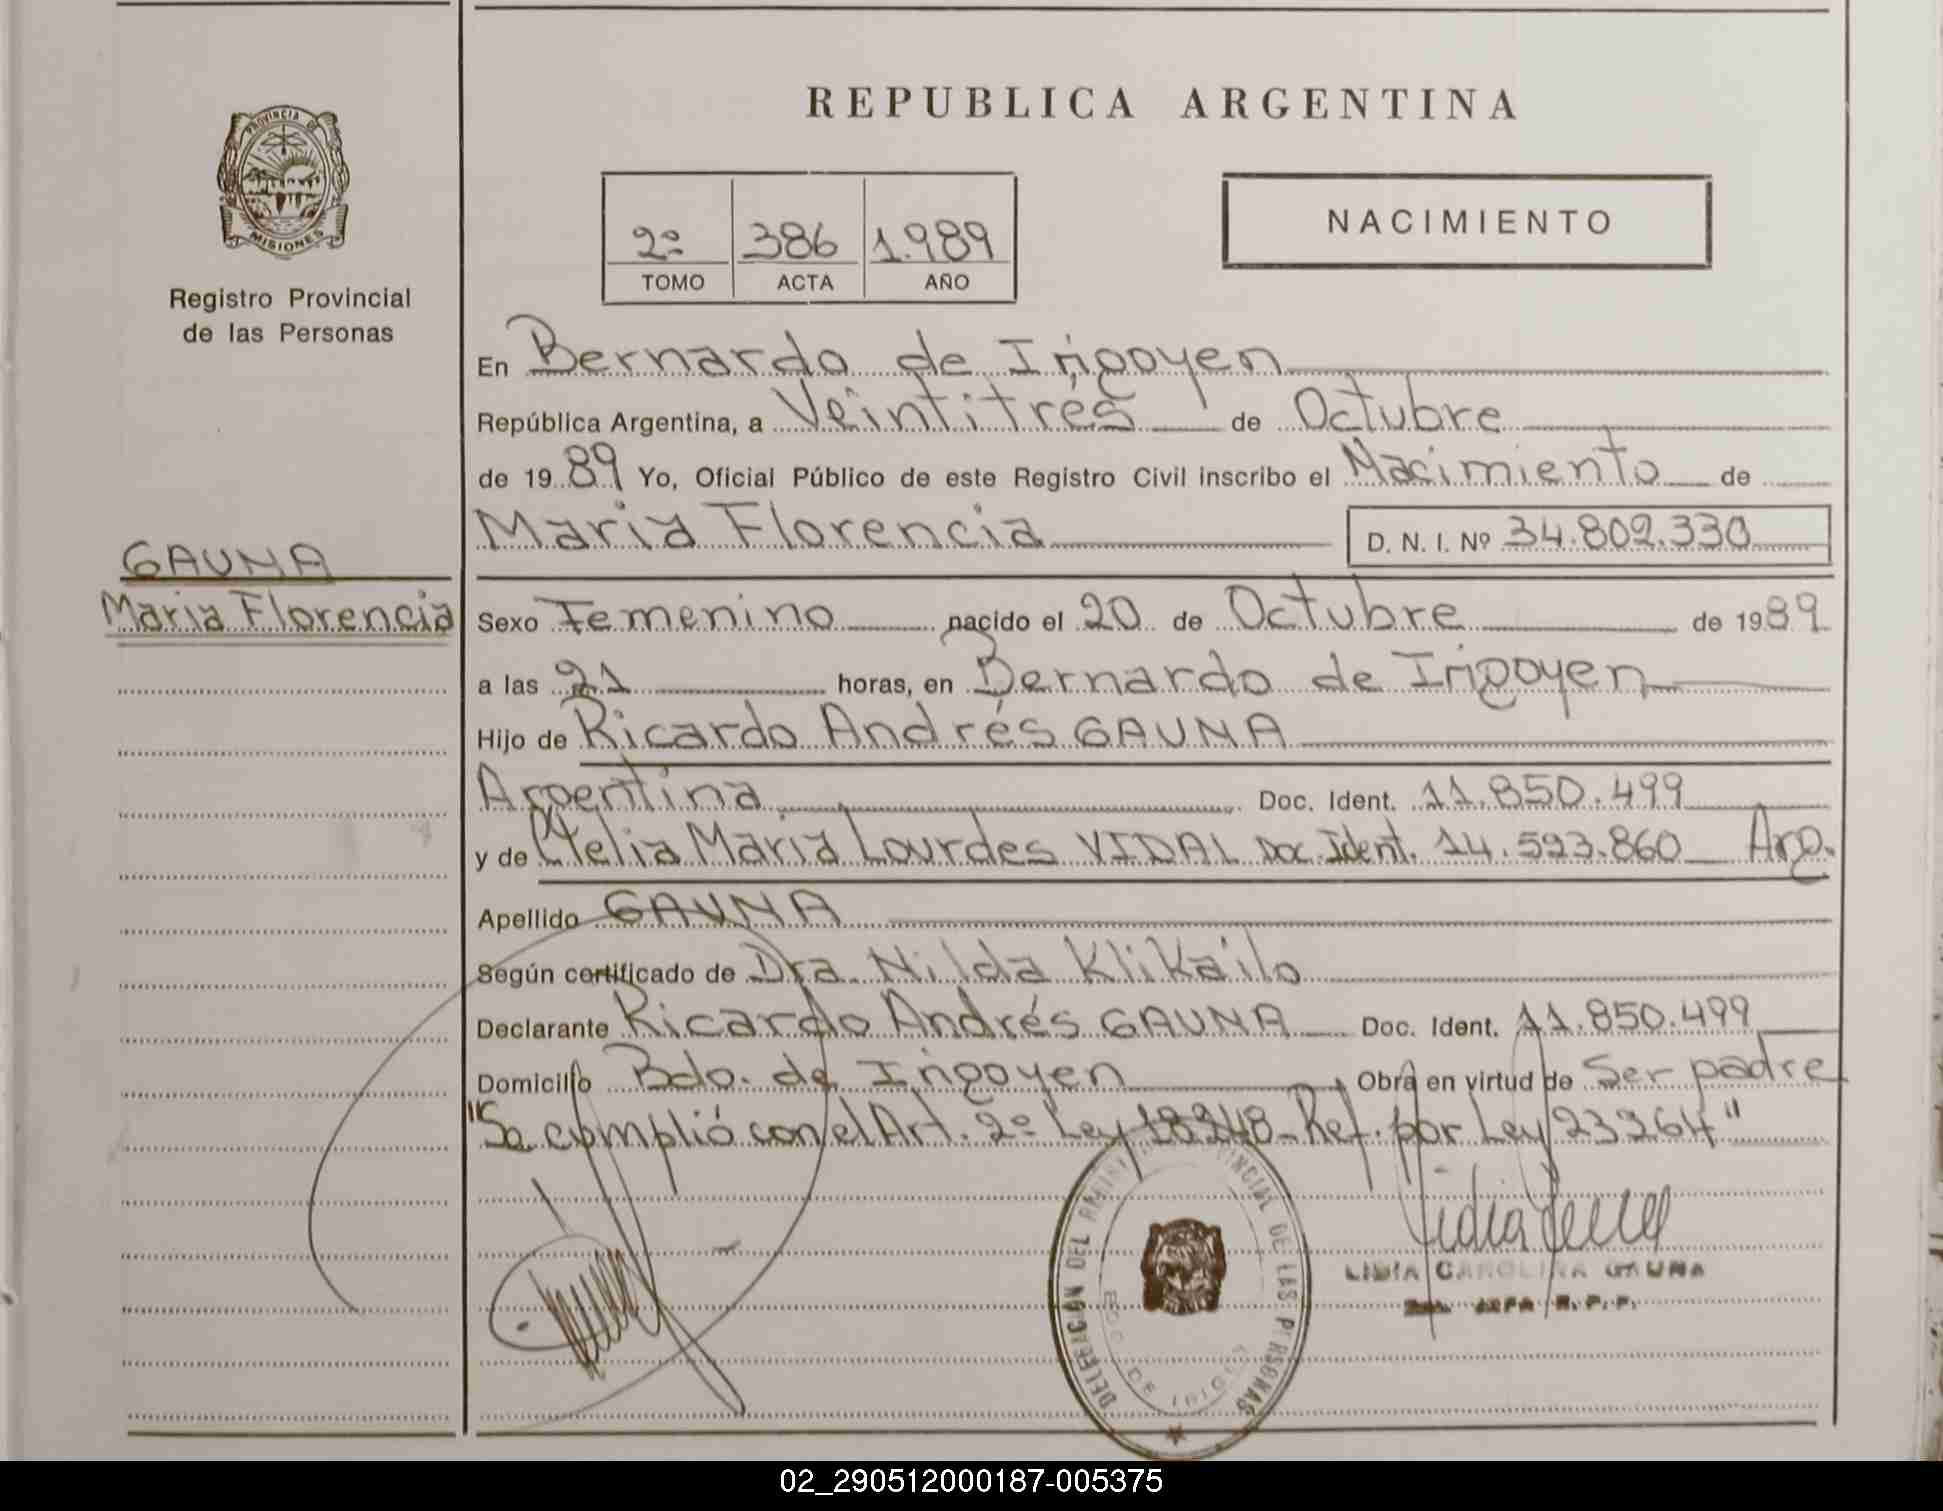 REPUBLICA ARGENTINA
PROVINCIA DE
MISIONES
Registro Provincial
de las Personas
2º 386 1.989
TOMO ACTA AÑO
NACIMIENTO
En Bernardo de Irigoyen
República Argentina, a Veintitrés de Octubre
de 1989 Yo, Oficial Público de este Registro Civil inscribo el Nacimiento de
Maria Florencia D. N. I. Nº 34.802.330
GAUNA
Maria Florencia
Sexo Femenino nacido el 20 de Octubre de 1989
a las 21 horas, en Bernardo de Irigoyen
Hijo de Ricardo Andrés GAUNA
Argentina Doc. Ident. 11.850.499
y de Maria Lourdes VIDAL Doc. Ident. 14.593.860 Arg.
Apellido GAUNA
Según certificado de Dra. Nilda Klikailo
Declarante Ricardo Andrés GAUNA Doc. Ident. 11.850.499
Domicilio Bdo. de Irigoyen Obra en virtud de Ser padre
"Se cumplió con el Art. 2º Ley 18248- Ref. por Ley 23264"
PROVINCIAL DE LAS PERSONAS
LIDIA CAROLINA GAUNA
02_290512000187-005375